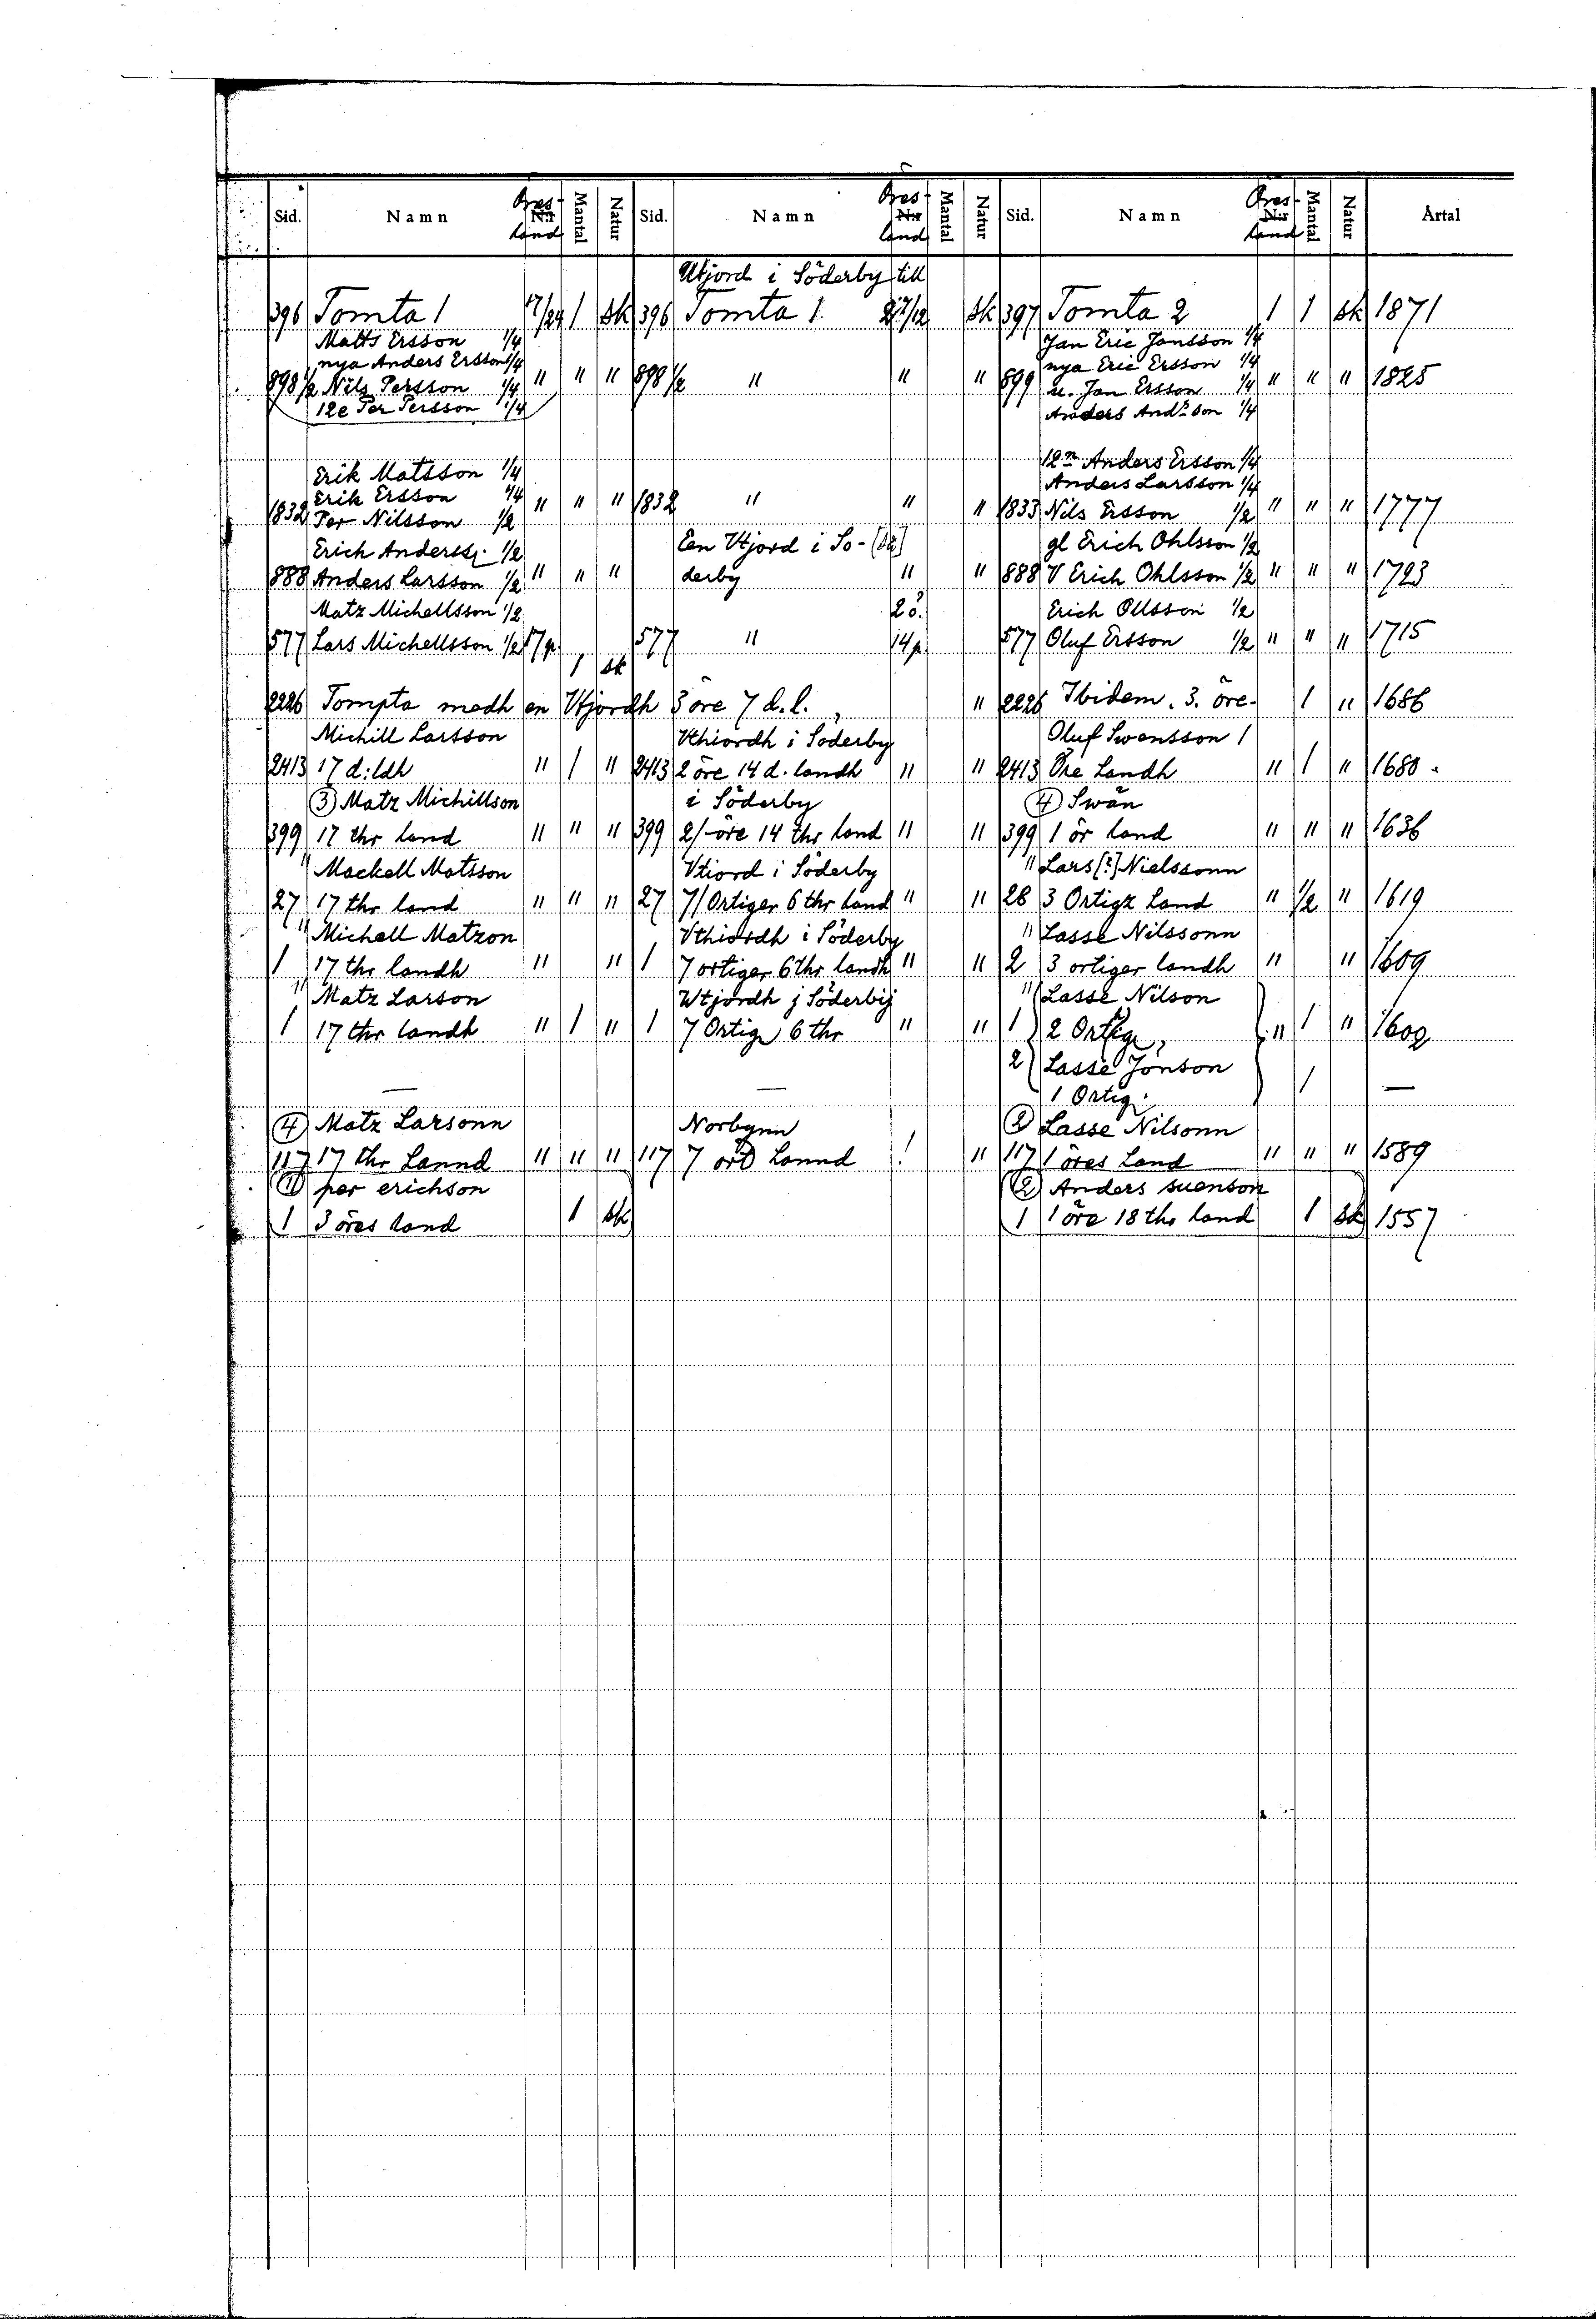 Sid. Namn Öres- Nr land Mantal Natur Sid. Namn Öres- Nr land Mantal Natur Sid. Namn Öres- Nr land Mantal Natur Årtal
Utjord i Söderby till
396 Tomta 1 17/24 1 sk 396 Tomta 1 2 7/12 sk 397 Tomta 2 1 1 sk 1871
Matts Ersson 1/4 Jan Eric Jansson 1/4
nya Anders Ersson 1/4 nya Eric Ersson 1/4
898 1/2 Nils Persson 1/4 " " " 898 1/2 " " " 899 u. Jan Ersson 1/4 " " " 1825
12e Per Persson 1/4 Anders And:son 1/4
Erik Matsson 1/4 12n Anders Ersson 1/4
Erik Ersson 1/4 Anders Larsson 1/4
1832 Per Nilsson 1/2 " " " 1832 " " " 1833 Nils Ersson 1/2 " " " 1777
Erich Anderss: 1/2 Een Utjord i So- gl Erich Ohlsson 1/2
888 Anders Larsson 1/2 " " " derby " " 888 V Erich Ohlsson 1/2 " " " 1723
Matz Michellsson 1/2 2 ö. Erich Ollsson 1/2
577 Lars Michellsson 1/2 17 p. 577 " 14 p. 577 Oluf Ersson 1/2 " " " 1715
1 sk
2226 Tompta medh en Vtjordh 3 öre 7 d.l. " 2226 Ibidem. 3. öre. 1 " 1686
Michill Larsson Vthiordh i Söderby Oluf Swensson 1
2413 17 d:ldh " 1 " 2413 2 öre 14 d. landh " " 2413 Öre Landh " 1 " 1680.
(3) Matz Michillson i Söderby (4) Swän
399 17 thr land " " " 399 2/-öre 14 thr land " " 399 1 ör land " " " 1636
" Mackell Matsson Vtiord i Söderby " Lars [?] Nielssonn
27 17 thr land " " " 27 7/ Ortiger 6 thr land " " 28 3 Ortigz Land " 1/2 " 1619
" Michell Matzon Vthiordh i Söderby " Lasse Nilssonn
1 17 thr landh " " 1 7 ortiger 6 thr landh " " 2 3 ortiger landh " " 1609
" Matz Larson Wtjordh j Söderbij " Lasse Nilson
1 17 thr landh " 1 " 1 7 Ortig 6 thr " " 1 2 Ortig " 1 " 1602
2 Lasse Jönson
— — 1 Ortig. 1 —
(4) Matz Larsonn Norbynn (3) Lasse Nilsonn
117 17 thr Lannd " " " 117 7 Lannd ! " 117 1 öres Land " " " 1589
(1) per erichson (2) Anders suenson
1 3 öres land 1 sk 1 1 öre 18 thr land 1 sk 1557